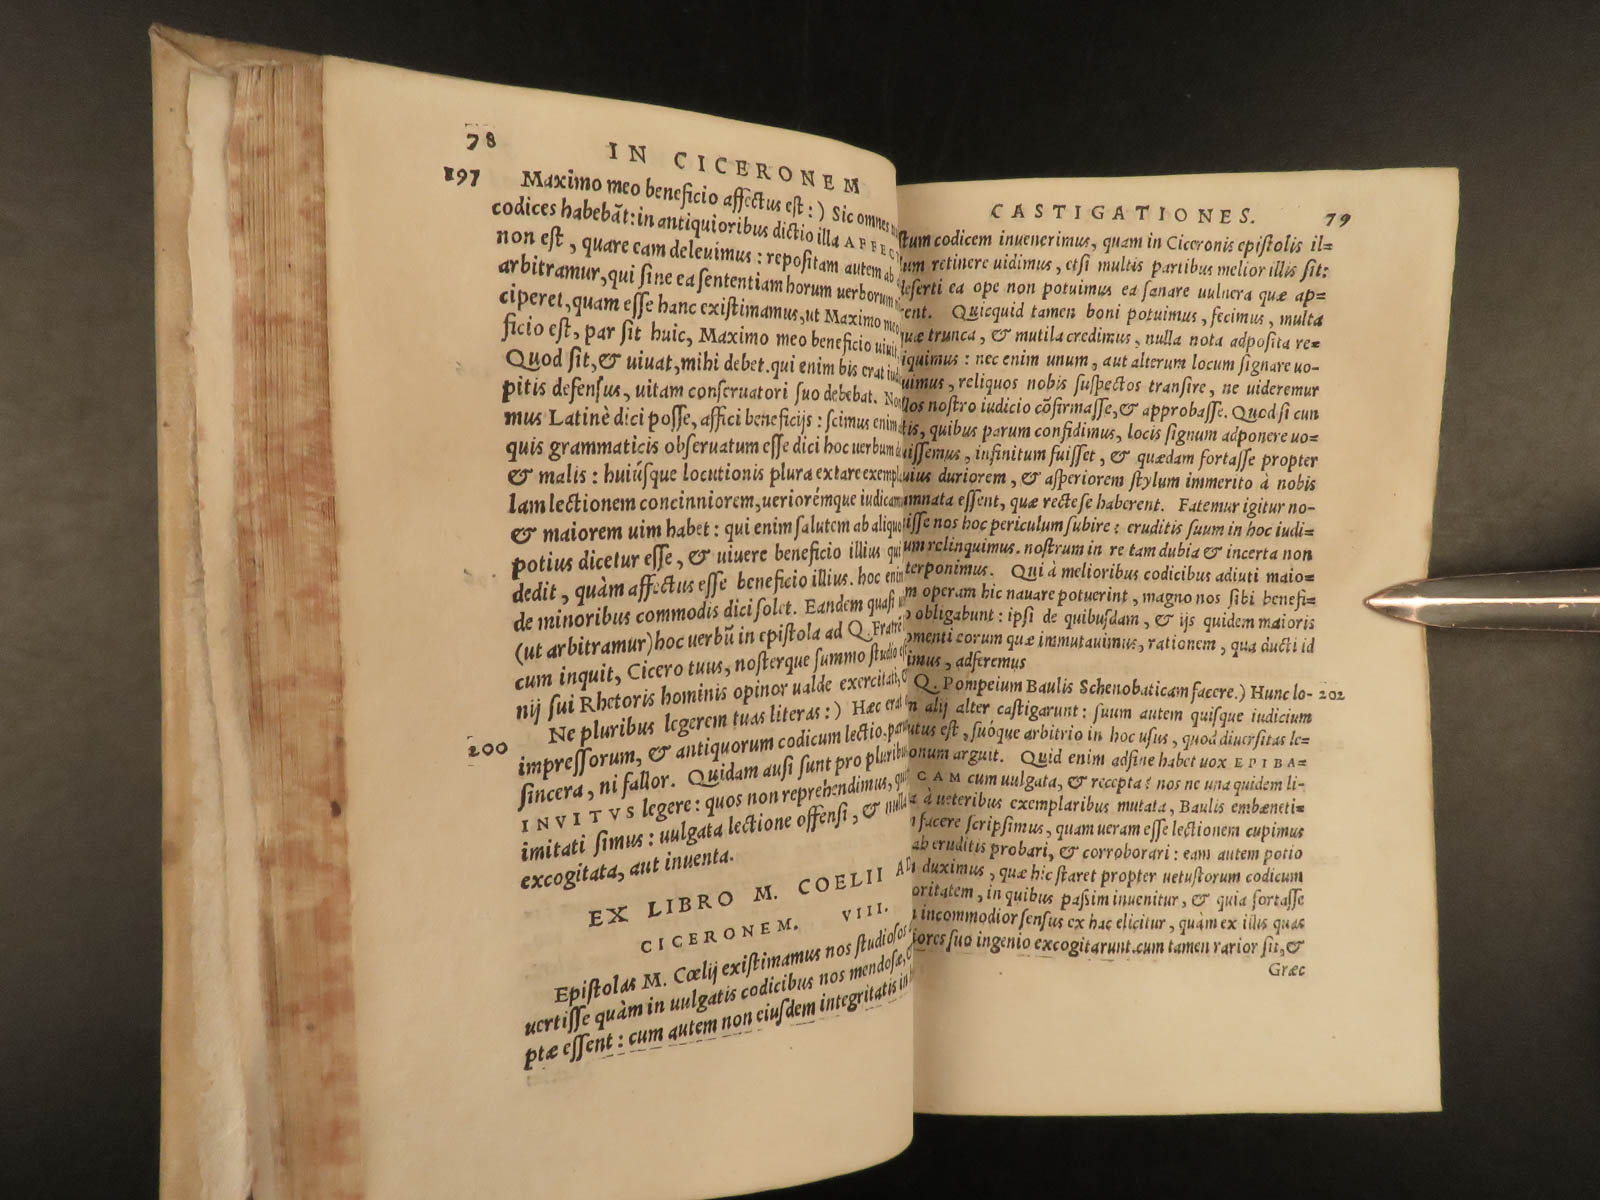 78
IN CICERONEM
197 Maximo meo beneficio affectus est:) Sic omnes
codices habebãt: in antiquioribus dictio illa AFFEC
non est, quare eam deleuimus: repositam autem ab
arbitramur, qui sine ea sententiam horum uerborum
ciperet, quam esse hanc existimamus, ut Maximo meo
ficio est, par sit huic, Maximo meo beneficio uiuit,
Quod sit, & uiuat, mihi debet. qui enim bis erat iudi
pitis defensus, uitam conseruatori suo debebat. Non
mus Latinè dici posse, affici beneficijs: scimus enim
quis grammaticis obseruatum esse dici hoc uerbum
& malis: huiúsque locutionis plura extare exempl
lam lectionem concinniorem, ueriorémque iudicam
& maiorem uim habet: qui enim salutem ab aliquo
potius dicetur esse, & uiuere beneficio illius qui
dedit, quàm affectus esse beneficio illius. hoc enim
de minoribus commodis dici solet. Eandem quasi
(ut arbitramur) hoc uerbũ in epistola ad Q. Fratrē
cum inquit, Cicero tuus, nosterque summo studio
nij sui Rhetoris hominis opinor ualde exercitati,
200 Ne pluribus legerem tuas literas:) Hæc erat
impressorum, & antiquorum codicum lectio. par
sincera, ni fallor. Quidam ausi sunt pro pluribus
INVITVS legere: quos non reprehendimus,
imitati simus: uulgata lectione offensi, & nulla
excogitata, aut inuenta.
EX LIBRO M. COELII AD
CICERONEM. VIII.
Epistolas M. Cœlij existimamus nos studiosos
uertisse quàm in uulgatis codicibus nos mendosæ,
ptæ essent: cum autem non eiusdem integritatis in
CASTIGATIONES. 79
stum codicem inuenerimus, quam in Ciceronis epistolis il=
lum retinere uidimus, etsi multis partibus melior illis sit:
deserti ea ope non potuimus ea sanare uulnera quæ ap=
rent. Quicquid tamen boni potuimus, fecimus, multa
quæ trunca, & mutila credimus, nulla nota adposita re=
liquimus: nec enim unum, aut alterum locum signare uo-
uimus, reliquos nobis suspectos transire, ne uideremur
llos nostro iudicio cõfirmasse, & approbasse. Quod si cun
tis, quibus parum confidimus, locis signum adponere uo=
uissemus, infinitum fuisset, & quædam fortasse propter
uius duriorem, & asperiorem stylum immerito à nobis
amnata essent, quæ recte se haberent. Fatemur igitur no-
isse nos hoc periculum subire: eruditis suum in hoc iudi=
um relinquimus. nostrum in re tam dubia & incerta non
terponimus. Qui à melioribus codicibus adiuti maio=
m operam hic nauare potuerint, magno nos sibi benefi=
o obligabunt: ipsi de quibusdam, & ijs quidem maioris
omenti eorum quæ immutauimus, rationem, qua ducti id
imus, adferemus
Q. Pompeium Baulis Schenobaticam facere.) Hunc lo- 202
n alij alter castigarunt: suum autem quisque iudicium
utus est, suóque arbitrio in hoc usus, quod diuersitas le=
onum arguit. Quid enim adfine habet uox EPIBA=
CAM cum uulgata, & recepta? nos ne una quidem li-
a à ueteribus exemplaribus mutata, Baulis embæneti=
n facere scripsimus, quam ueram esse lectionem cupimus
ab eruditis probari, & corroborari: eam autem potio
n duximus, quæ hic staret propter uetustorum codicum
oritatem, in quibus passim inuenitur, & quia fortasse
n incommodior sensus ex hac elicitur, quàm ex illis quas
iores suo ingenio excogitarunt. cum tamen rarior sit, &
Græc